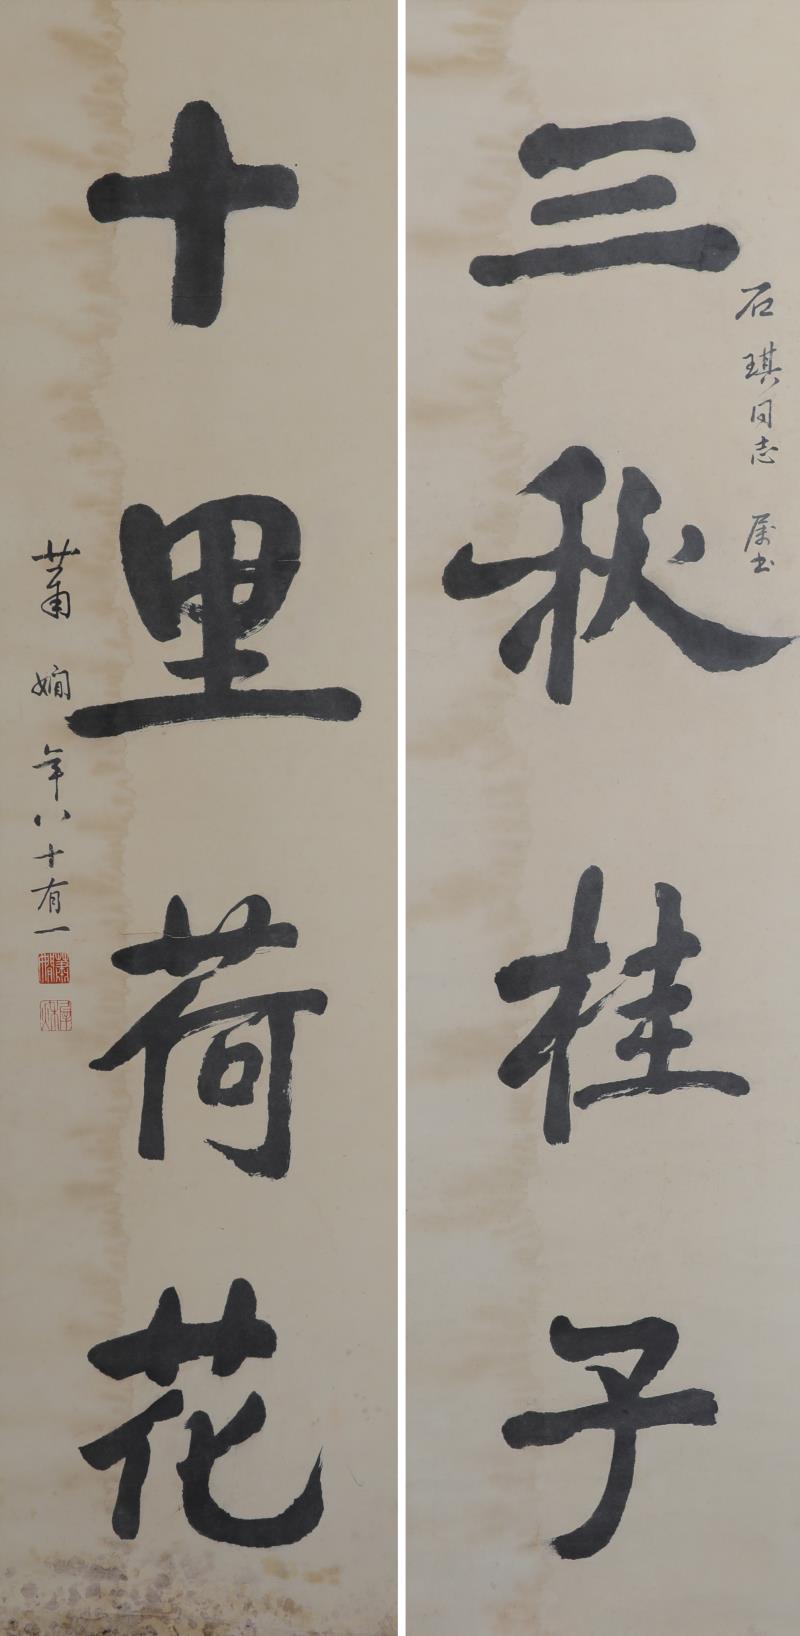 三秋桂子
石琪同志 属书
十里荷花
萧娴 年八十有一